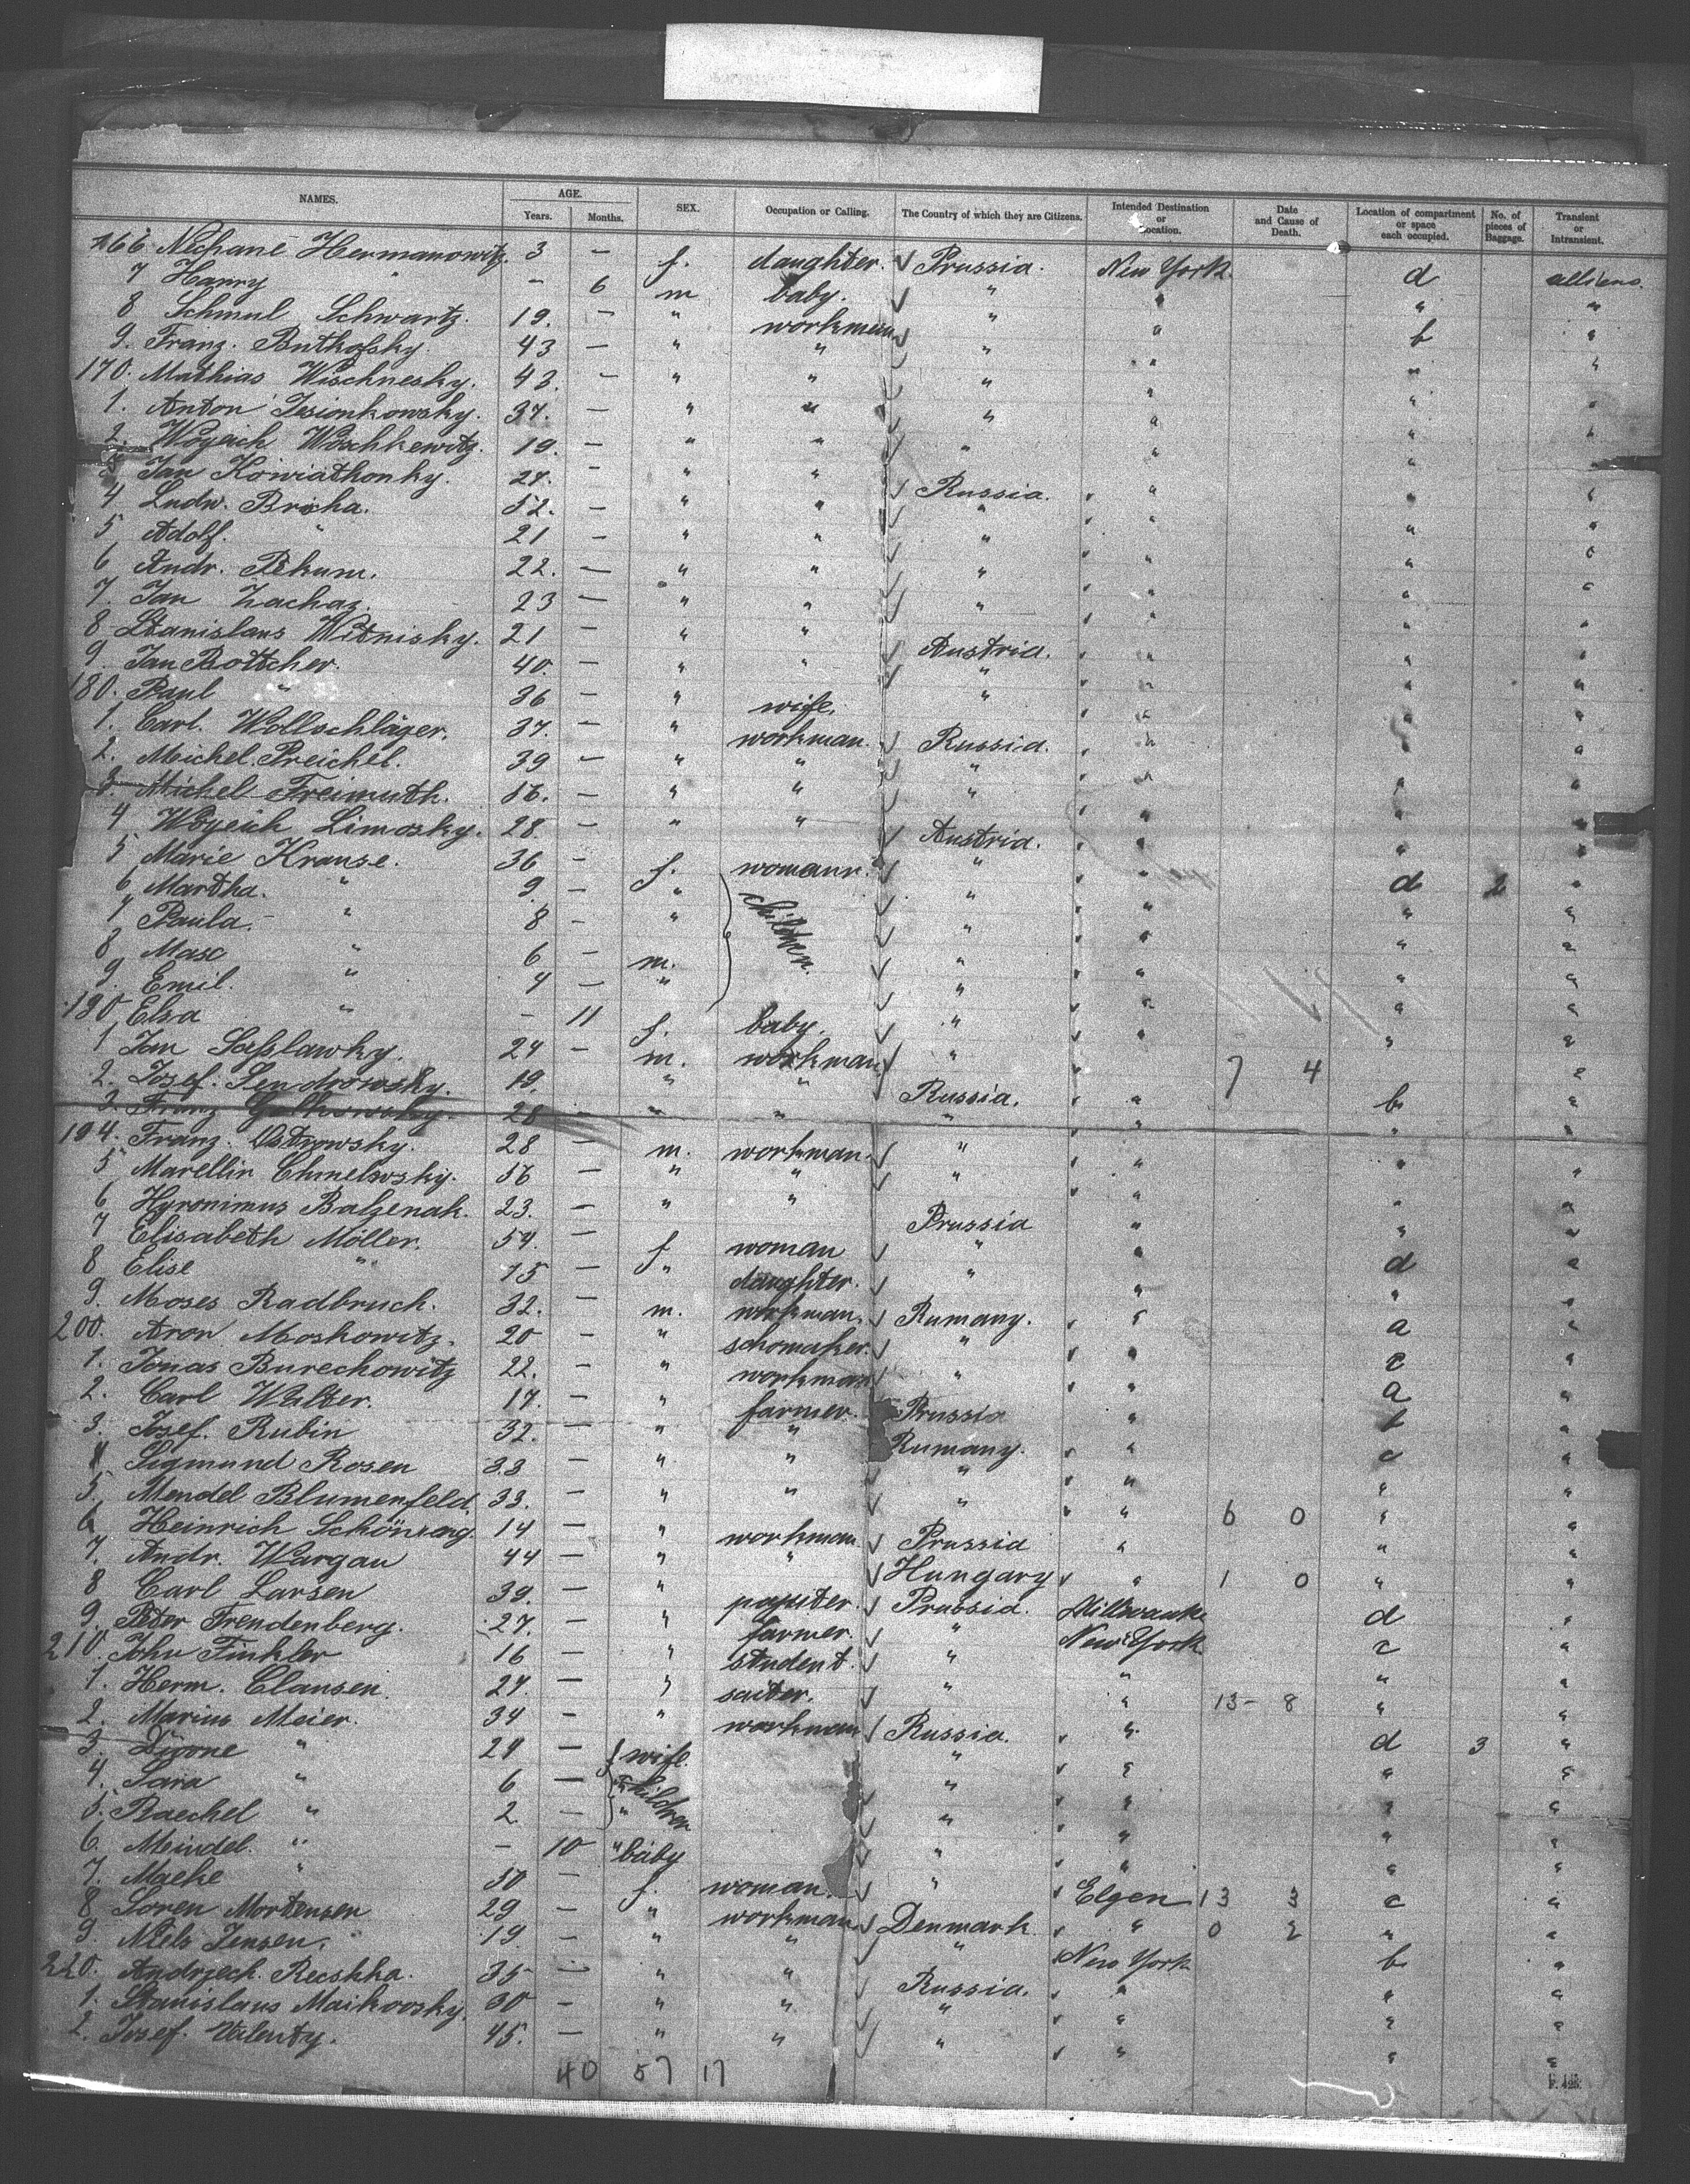 NAMES. AGE. Years. Months. SEX. Occupation or Calling. The Country of which they are Citizens. Intended Destination or Location. Date and Cause of Death. Location of compartment or space each occupied. No. of pieces of Baggage. Transient or Intransient.
166 Nechane Hermanowitz. 3 — f. daughter. Prussia. New York d alliens.
7 Harry " — 6 m baby. " " " "
8 Schmul Schwartz. 19. — " workman " " b "
9. Franz. Buthofsky. 43 — " " " " " "
170. Mathias Wischnesky. 43. — " " " " " "
1. Anton Jesionkowsky. 37. — " " " " " "
2. Woyeich Woschkewitz. 19. — " " " " " "
3 Jan Kowiathonky. 27. — " " Russia. " " "
4 Ludw. Bricha. 52. — " " " " " "
5 Adolf. " 21 — " " " " " "
6 Andr. Pekum. 22. — " " " " " "
7. Jan Zachaz. 23 — " " " " " "
8 Stanislaus Witnisky. 21 — " " Austria. " " "
9. Jan Bottcher. 40. — " " " " " "
180. Paul " 36 — " wife. " " " "
1. Carl. Wollschläger. 37. — " workman. Russia. " " "
2. Michel. Preichel. 39 — " " " " " "
3. Michel Freimuth. 16. — " " " " " "
4 Woyeich Limosky. 28. — " " Austria. " " "
5 Marie Krause. 36 — f. womann. " " d 2 "
6 Martha. " 9. — " children. " " " "
7 Paula. " 8 — " " " " "
8 Max " 6 — m. " " " "
9. Emil. " 4 — " " " " "
190 Elsa " — 11 f. baby. " " " "
1 Jan Saßlawky. 24 — m. workman " 7 4 "
2. Josef. Sendrowsky. 19. " " Russia. " b. "
3. Franz 28 — " " " " " "
194. Franz. Ostrowsky. 28 — m. workman. " " " "
5 Marellin Chmelwsky. 16 — " " " " "
6 Hyronimus Balzenak. 23. — " " Prussia " " "
7 Elisabeth Möller. 54. — f woman " " d "
8 Elise " 15 — " daughter. " " " "
9. Moses Radbruch. 32. — m. workman. Rumany. " a "
200. Aron Moskowitz. 20 — " schomaker. " " c "
1. Jonas Burechowitz 22. — " workman " " a "
2. Carl Walter. 17. — " farmer. Prussia " b "
3. Josef. Rubin 32. — " " Rumany. " c "
4 Sigmund Rosen 33 — " " " " " "
5. Mendel Blumenfeld. 33. — " " " " 6 0 " "
6 Heinrich 14 — " workman Prussia " " "
7. Andr. Wargau 44 — " " Hungary " 1 0 " "
8 Carl Larsen 39. — " Prussia. Millwauke d "
9. Peter Freudenberg. 27. — " farmer. " New York c "
210. John Finkler 16 — " student. " " " "
1. Herm. Clausen. 27. — " saiter. " " 13 - 8 " "
2. Marius Meier. 34 — " workman Russia. " d 3 "
3. " 24 — f wife. " " " "
4. Sara " 6 — " children " " " "
5. Raechel " 2. — " " " " "
6. Meindel. " — 10 " baby " " " "
7. Maeke " 50 — f. woman. " Elgen 13 3 c "
8 Soren Mortensen 29 — " workman Denmark " 0 2 " "
9 Niels Jensen. 19. — " " " New York b. "
220. Andrzech. Reschka. 35 — " " Russia. " " "
1. Stanislaus Maikovsky. 30 — " " " " " "
2. Josef. Valenty. 45. — " " " " " "
40 57 17